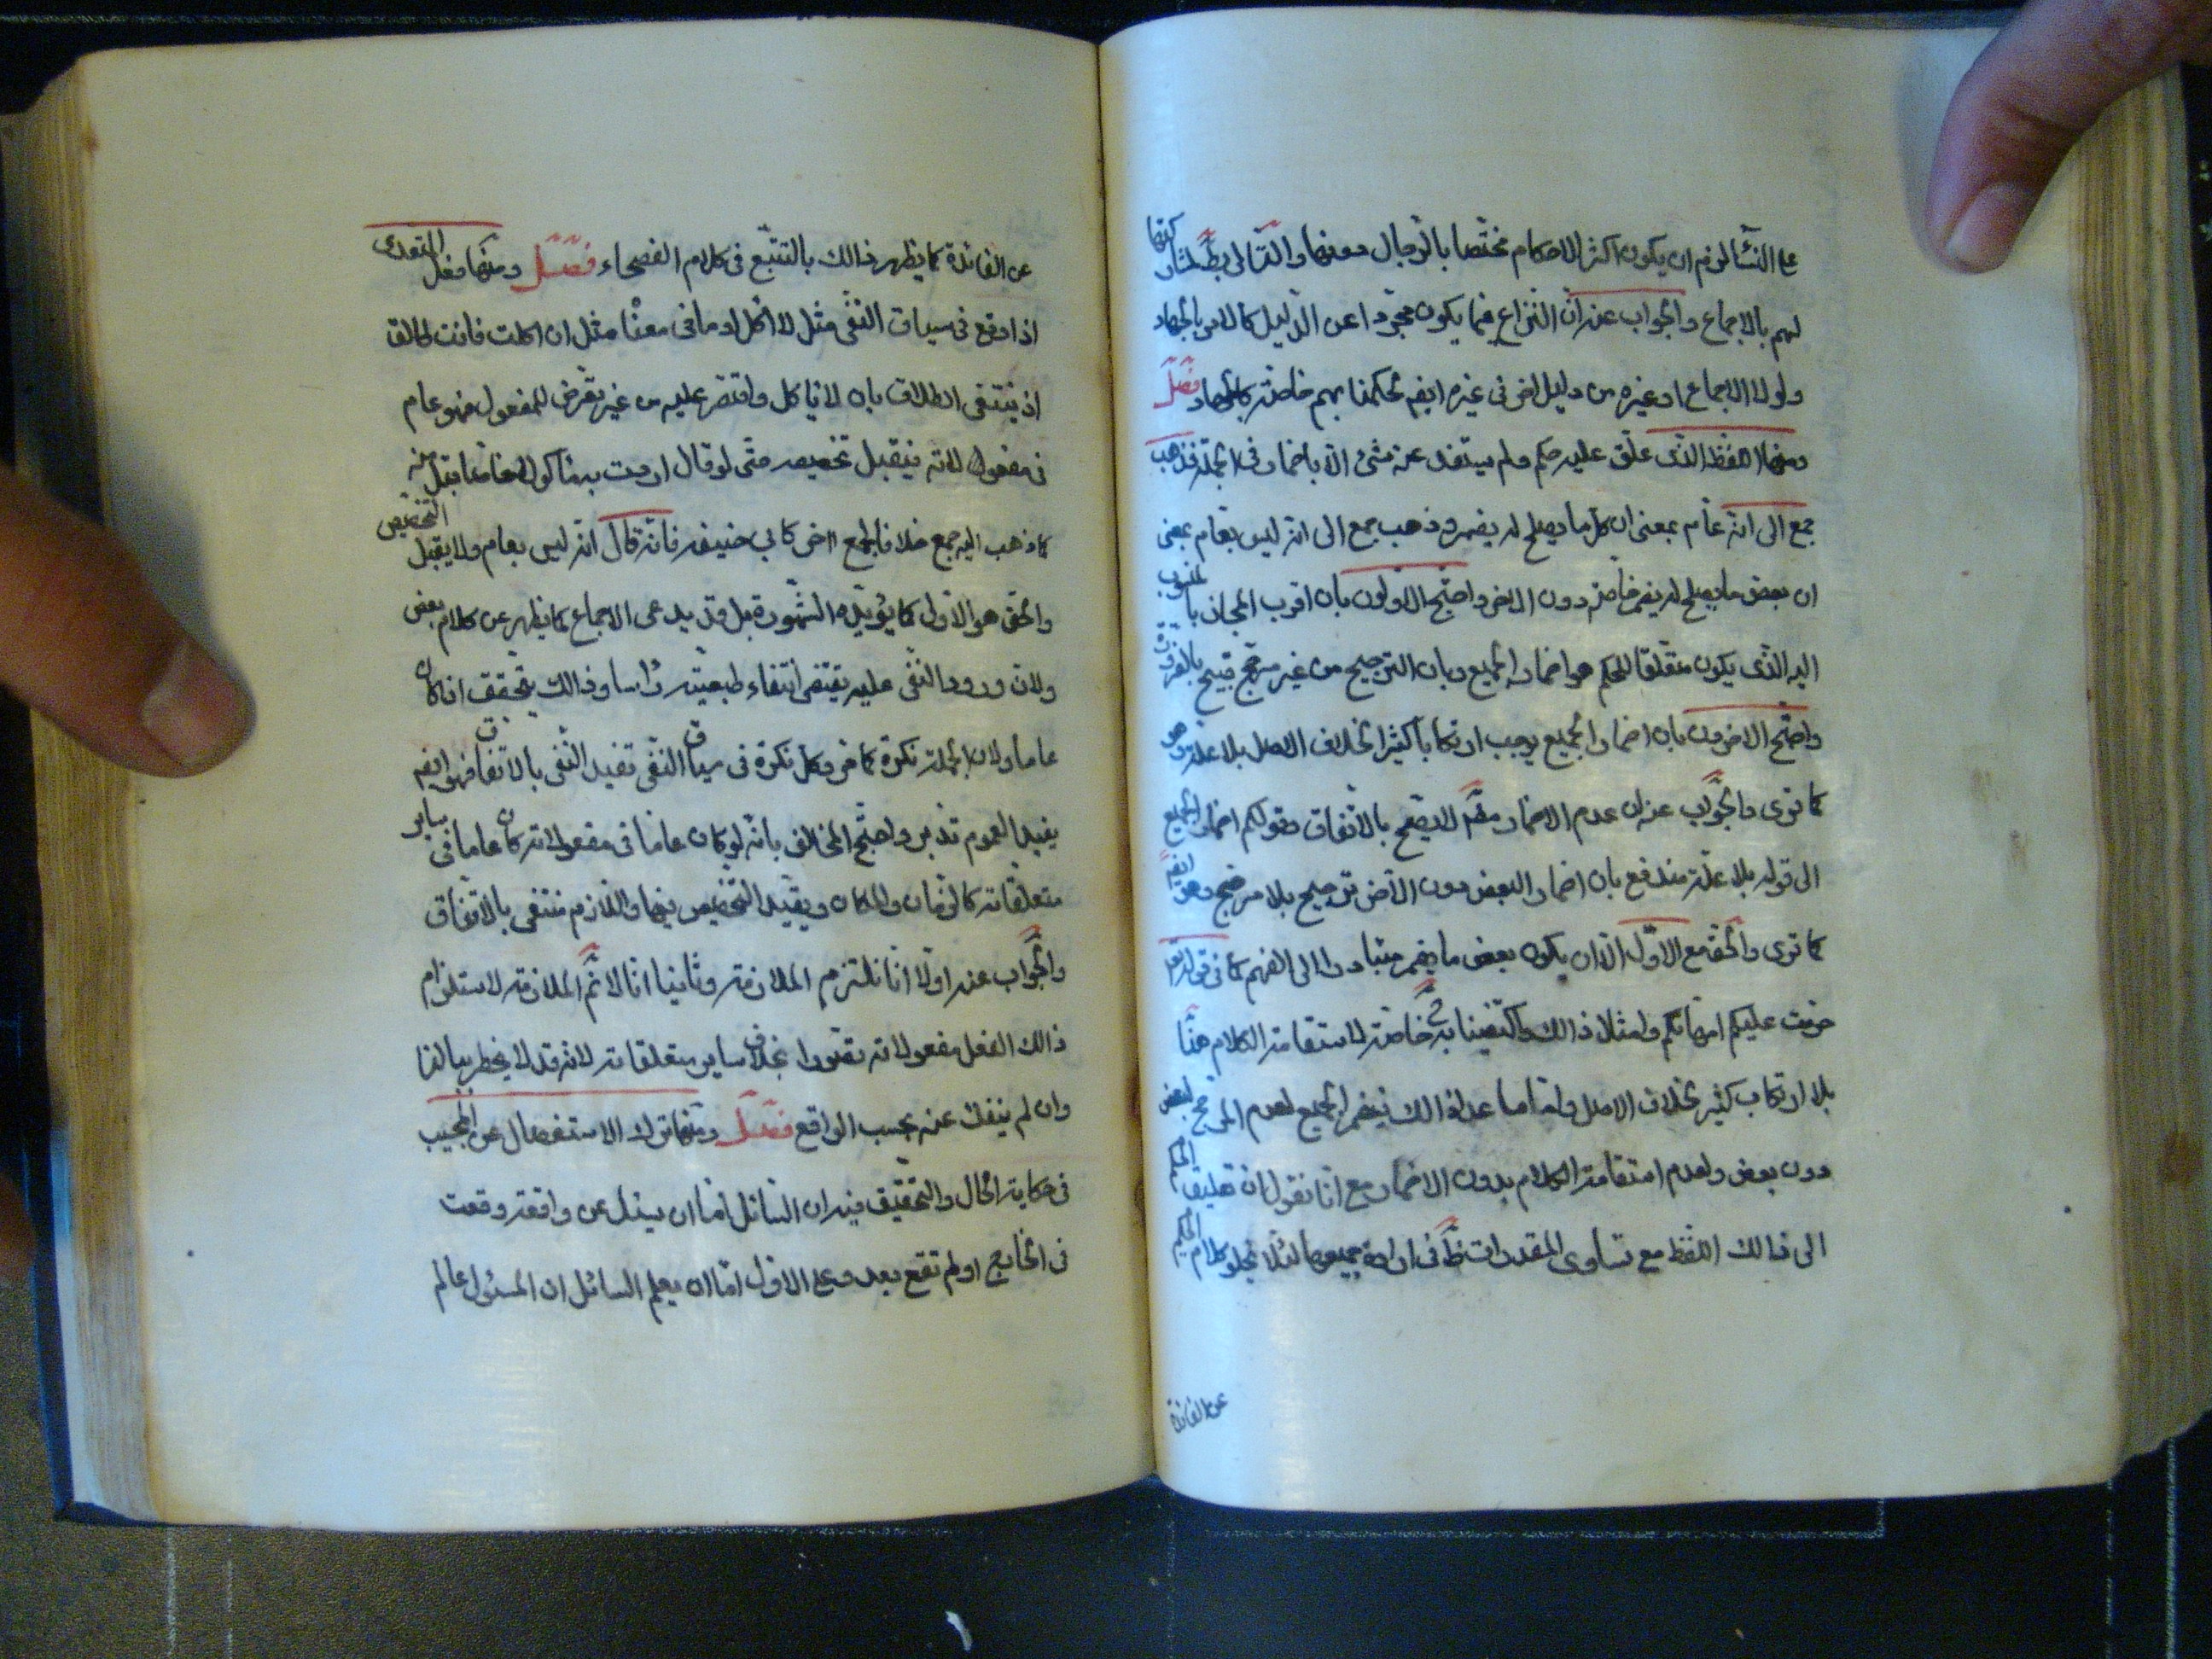 على النساء لزم ان يكون اكثر الاحكام مختصا بالرجال دونها والتالى بط لمشاركتها
لهم بالاجماع والجواب عنه ان النزاع فيما يكون مجردا عن الدليل كالامر بالجهاد
ولولا الاجماع او غيره من دليل اخر فى غيره ايضم لحكمنا بهم خاصة كالجهاد فصل
ومنها اللفظ الذى علق عليه حكم ولم يستفد عنه شئ الا باضمار فى الجملة فذهب
جمع الى انه عام بمعنى ان كل ما يصلح له يضمر وذهب جمع الى انه ليس بعام بمعنى
ان بعض ما يصلح له يضمر خاصة دون الاخر واحتج الاولون بان اقرب المجاز بالمنسوب
اليه الذى يكون متعلقا للحكم هو اضمار الجميع وبان الترجيح من غير مرجح قبيح بالضرورة
واحتج الاخرون بان اضمار الجميع يوجب ارتكابا كثيرا لخلاف الاصل بلا علة وهو
كما ترى والجواب عنه ان عدم الاضمار لا يصح بالاتفاق وقولكم اضمار الجميع
الى قوله بلا علة مندفع بان اضمار البعض دون الاخر ترجيح بلا مرجح وهو ايضم
كما ترى والحق مع الاول الا ان يكون بعض ما يضمر متبادرا الى الفهم كما فى قوله تعا
حرمت عليكم امهاتكم وامثلا ذالك واكتفينا به خاصة لاستقامة الكلام هنا
بلا ارتكاب كثير لخلاف الاصل واما ما عدا ذالك فيضمر الجميع لعدم المرجح لبعض
دون بعض ولعدم استقامة الكلام بدون الاضمار مع انا نقول ان تعليق الحكم
الى ذالك اللفظ مع تساوى المقدرات ظ فى ارادة جميعها لئلا يخلو كلام الحكيم
عن الفائدة
عن الفائدة كما يظهر ذالك بالتتبع فى كلام الفصحاء فصل ومنها فعل المتعدى
اذا وقع فى سياق النفى مثل لا اكل او ما فى معناه مثل ان اكلت فانت طالقا
اذ ينتفى الطلاق بان لا ياكل واقتصر عليه من غير تعرض للمفعول فهو عام
فى مفعوله لانه فيقبل تخصيصه حتى لو قال اردت به ماكولا خاصا يقبل منه
كما ذهب اليه جمع خلافا لجمع اخر كابي حنيفه فانه قال انه ليس بعام ولا يقبل التخصيص
والحق هو الاول كما يؤيده الشهورة بل قد يدعى الاجماع كما يظهر عن كلام بعض
ولان ورود النفى عليه يقتضى انتفاء طبيعته راسا وذالك يتحقق اذا كان
عاما ولان الجملة نكرة كما مر وكل نكرة فى سياق النفى تفيد النفى بالاتفاق فهو ايضم
يفيد العموم تدبر واحتج المخالف بانه لو كان عاما فى مفعولاته كان عاما فى ساير
متعلقاته كالزمان والمكان ويقبل التخصيص فيها واللازم منتفى بالاتفاق
والجواب عنه اولا انا نلتزم الملازمة وثانيا انا لا نم الملازمة لاستلزام
ذالك الفعل مفعولاته تصورا بخلاف ساير متعلقاته لانه قد لا يخطر ببالنا
وان لم ينفك عنه بحسب الواقع فصل ومنها ترك الاستفصال عن المجيب
فى حكاية الحال والتحقيق فيه ان السائل اما ان يسئل عن واقعة وقعت
فى الخارج او لم تقع بعد وعلى الاول اما ان يعلم السائل ان المسئول عالم